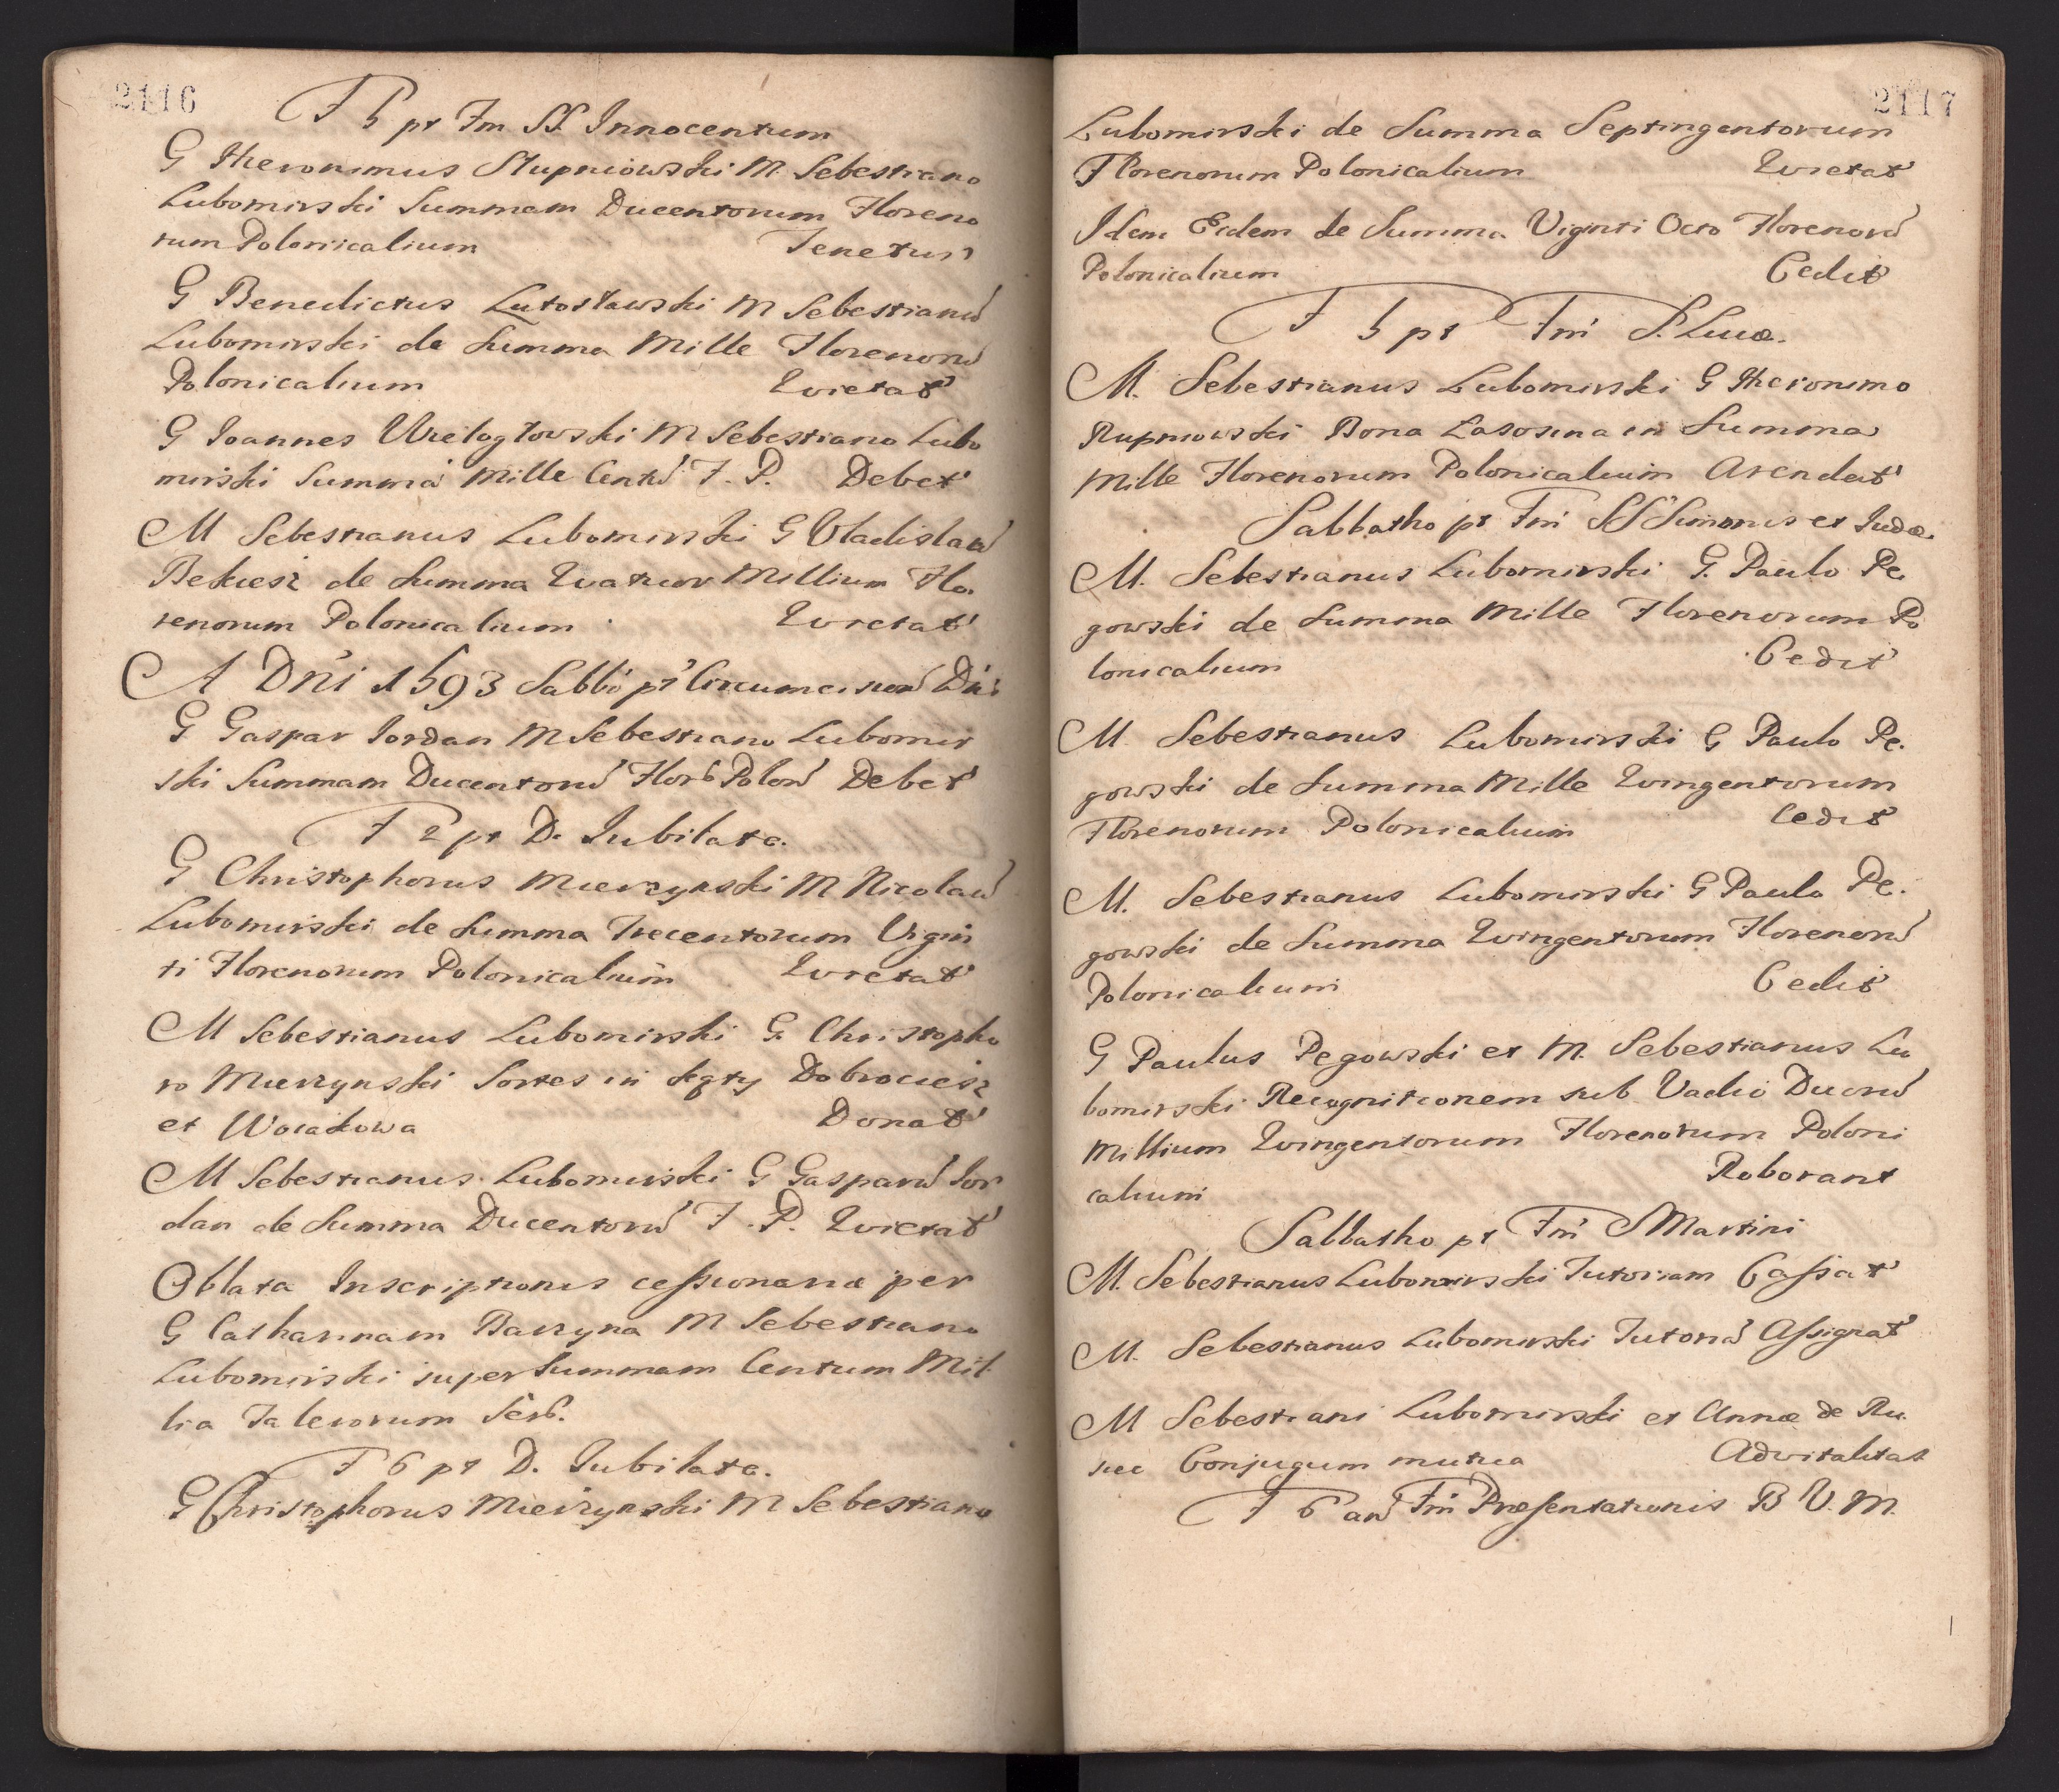 2116
F 5 pt Fm SS. Innocentum
G Hieronimus Stupniowski M. Sebestiano
Lubomirski Summam Ducentorum Floreno
rum Polonicalium Tenetur
G Benedictus Lutosławski M Sebestiano
Lubomirski de Summa Mille Florenoru
Polonicalium Quietat
G Joannes Wielogłowski M Sebestiano Lubo
mirski Summa Mille Centu F. P. Debet
M Sebestianus Lubomirski G Vladislao
Bekiesz de Summa Quatuor Millium Flo.
renorum Polonicalium Quietat
A Dni 1593 Sabbo pt Circumcision Dni
G Gaspar Jordan M Sebestiano Lubomir
ski Summam Ducentoru Flor Polon Debet
F 2 pt D. Jubilate.
G Christophorus Mierzynski M Nicolao
Lubomirski de Summa Trecentorum Vigin
ti Florenorum Polonicalium Quietat
M Sebestianus Lubomirski G. Christopho
ro Mierzynski Sortes in Kąty Dobrociesz
et Woiakowa Donat
M Sebestianus Lubomirski G Gasparo Jor
dan de Summa Ducentoru F. P. Quietat
Oblata Inscriptionis cessionariæ per
G Catharinam Barzyna M Sebestiano
Lubomirski super Summam Centum Mil
lia Talerorum Serb.
F 6 pt D. Jubilate.
G Christophorus Mierzynski M Sebestiano
2117
Lubomirski de Summa Septingentorum
Florenorum Polonicalium Quietat
Idem Eidem de Summa Viginti Octo Florenoru
Polonicalium Cedit
F 5 pt Fm S. Lucæ.
M. Sebestianus Lubomirski G Hieronimo
Rupniowski Bona Lasosina in Summa
Mille Florenorum Polonicalium Arendat
Sabbatho pt Fm SS Simonis et Judæ.
M. Sebestianus Lubomirski G. Paulo Pe
gowski de Summa Mille Florenorum Po
lonicalium Cedit
M Sebestianus Lubomirski G Paulo Pe.
gowski de Summa Mille Quingentorum
Florenorum Polonicalium Cedit
M. Sebestianus Lubomirski G Paulo Pe.
gowski de Summa Quingentorum Florenoru
Polonicalium Cedit
G Paulus Pegowski et M. Sebestianus Lu
bomirski Recognitionem sub Vadio Duoru
Millium Quingentorum Florenorum Poloni
calium Roborant
Sabbatho pt Fm S Martini
M. Sebestianus Lubomirski Tutoriam Cassat
M. Sebestianus Lubomirski Tutoru Assignat
M Sebestiani Lubomirski et Annæ de Ru.
siec Conjugum mutua Advitalitas
F 6 an Fm Præsentationis B V. M.